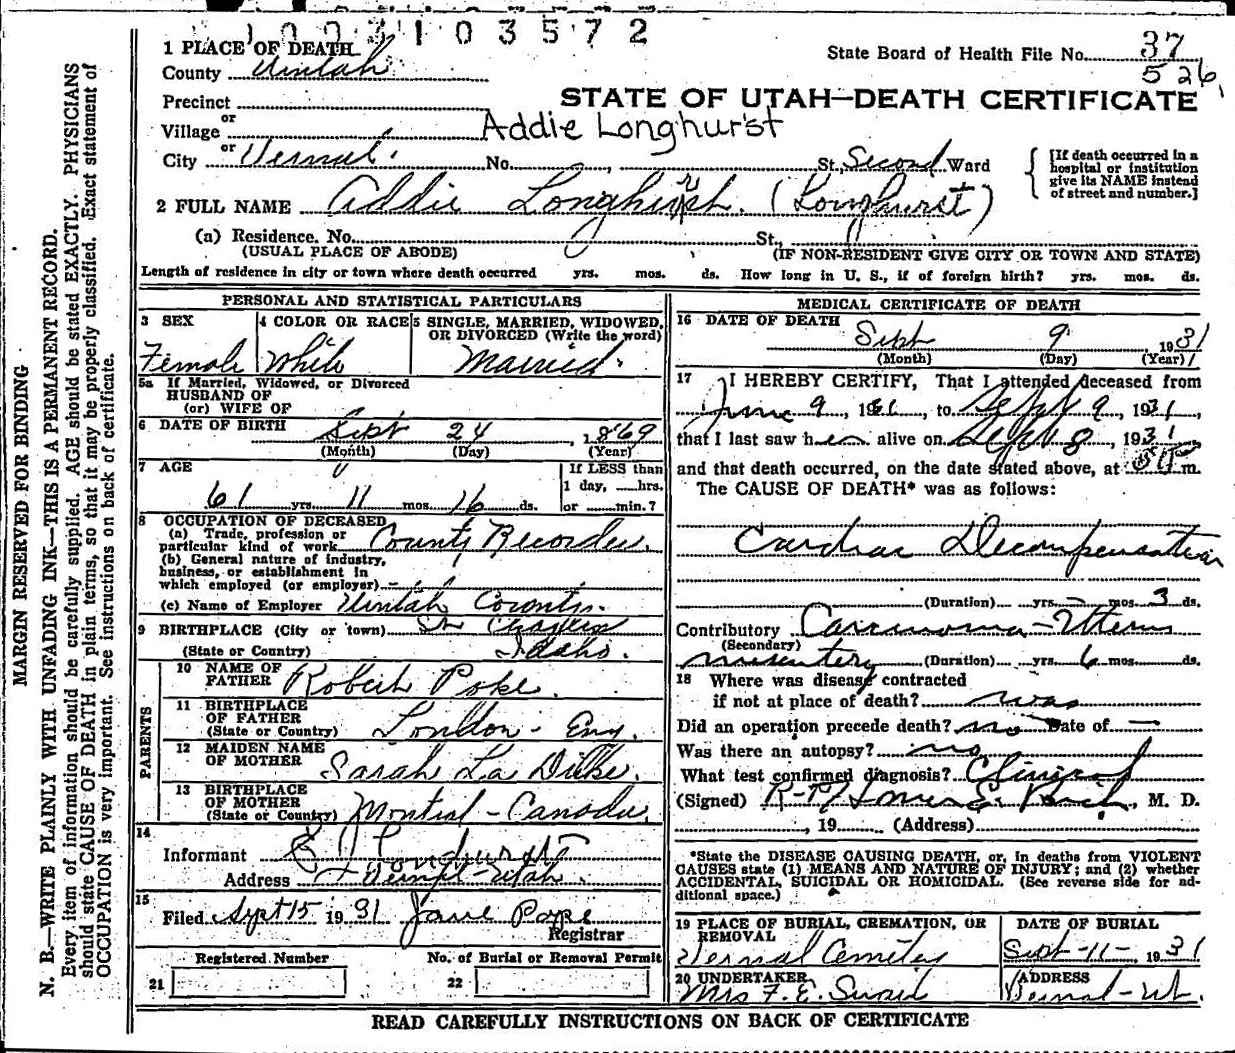 1003103572
1 PLACE OF DEATH
County Uintah
State Board of Health File No. 37
526
Precinct
or
Village
STATE OF UTAH—DEATH CERTIFICATE
Addie Longhurst
City or Vernal. No. St., Second Ward
[If death occurred in a hospital or institution give its NAME instead of street and number.]
2 FULL NAME Addie Longhursh. (Longhurst)
(a) Residence. No. St.,
(USUAL PLACE OF ABODE) (IF NON-RESIDENT GIVE CITY OR TOWN AND STATE)
Length of residence in city or town where death occurred yrs. mos. ds. How long in U. S., if of foreign birth? yrs. mos. ds.
PERSONAL AND STATISTICAL PARTICULARS
3 SEX
Female
4 COLOR OR RACE
White
5 SINGLE, MARRIED, WIDOWED, OR DIVORCED (Write the word)
Married.
5a If Married, Widowed, or Divorced
HUSBAND OF
(or) WIFE OF
6 DATE OF BIRTH Sept 24, 1869
(Month) (Day) (Year)
7 AGE
61 yrs. 11 mos. 16 ds.
If LESS than
1 day, hrs.
or min.?
8 OCCUPATION OF DECEASED
(a) Trade, profession or
particular kind of work County Recorder.
(b) General nature of industry,
business, or establishment in
which employed (or employer)
(c) Name of Employer Uintah County.
9 BIRTHPLACE (City or town) St Charles
(State or Country) Idaho.
PARENTS
10 NAME OF
FATHER Robert Poke.
11 BIRTHPLACE
OF FATHER
(State or Country) London - Eng.
12 MAIDEN NAME
OF MOTHER Sarah La Duke.
13 BIRTHPLACE
OF MOTHER
(State or Country) Montreal - Canada.
14
Informant Longhurst
Address Vernal - Utah.
15
Filed Sept 15 1931 Jane Pope
Registrar
Registered Number No. of Burial or Removal Permit
21 22
MEDICAL CERTIFICATE OF DEATH
16 DATE OF DEATH
Sept 9, 1931
(Month) (Day) (Year)
17 I HEREBY CERTIFY, That I attended deceased from
June 9, 1931, to Sept 9, 1931,
that I last saw her alive on Sept 8, 1931
and that death occurred, on the date stated above, at m.
The CAUSE OF DEATH* was as follows:
Cardiac Decompensation
(Duration) yrs. — mos. 3 ds.
Contributory Carcinoma - Uterus
(Secondary)
mesentery (Duration) yrs. 6 mos. ds.
18 Where was disease contracted
if not at place of death? was
Did an operation precede death? no Date of —
Was there an autopsy? no
What test confirmed diagnosis? Clinical
(Signed) M. D.
, 19 (Address)
*State the DISEASE CAUSING DEATH, or, in deaths from VIOLENT
CAUSES state (1) MEANS AND NATURE OF INJURY; and (2) whether
ACCIDENTAL, SUICIDAL OR HOMICIDAL. (See reverse side for ad-
ditional space.)
19 PLACE OF BURIAL, CREMATION, OR
REMOVAL
Vernal Cemetery
DATE OF BURIAL
Sept - 11 - , 1931
20 UNDERTAKER
Mrs F. E. Swain
ADDRESS
Vernal - Ut.
READ CAREFULLY INSTRUCTIONS ON BACK OF CERTIFICATE
MARGIN RESERVED FOR BINDING
N. B.—WRITE PLAINLY WITH UNFADING INK—THIS IS A PERMANENT RECORD.
Every item of information should be carefully supplied. AGE should be stated EXACTLY. PHYSICIANS
should state CAUSE OF DEATH in plain terms, so that it may be properly classified. Exact statement of
OCCUPATION is very important. See instructions on back of certificate.